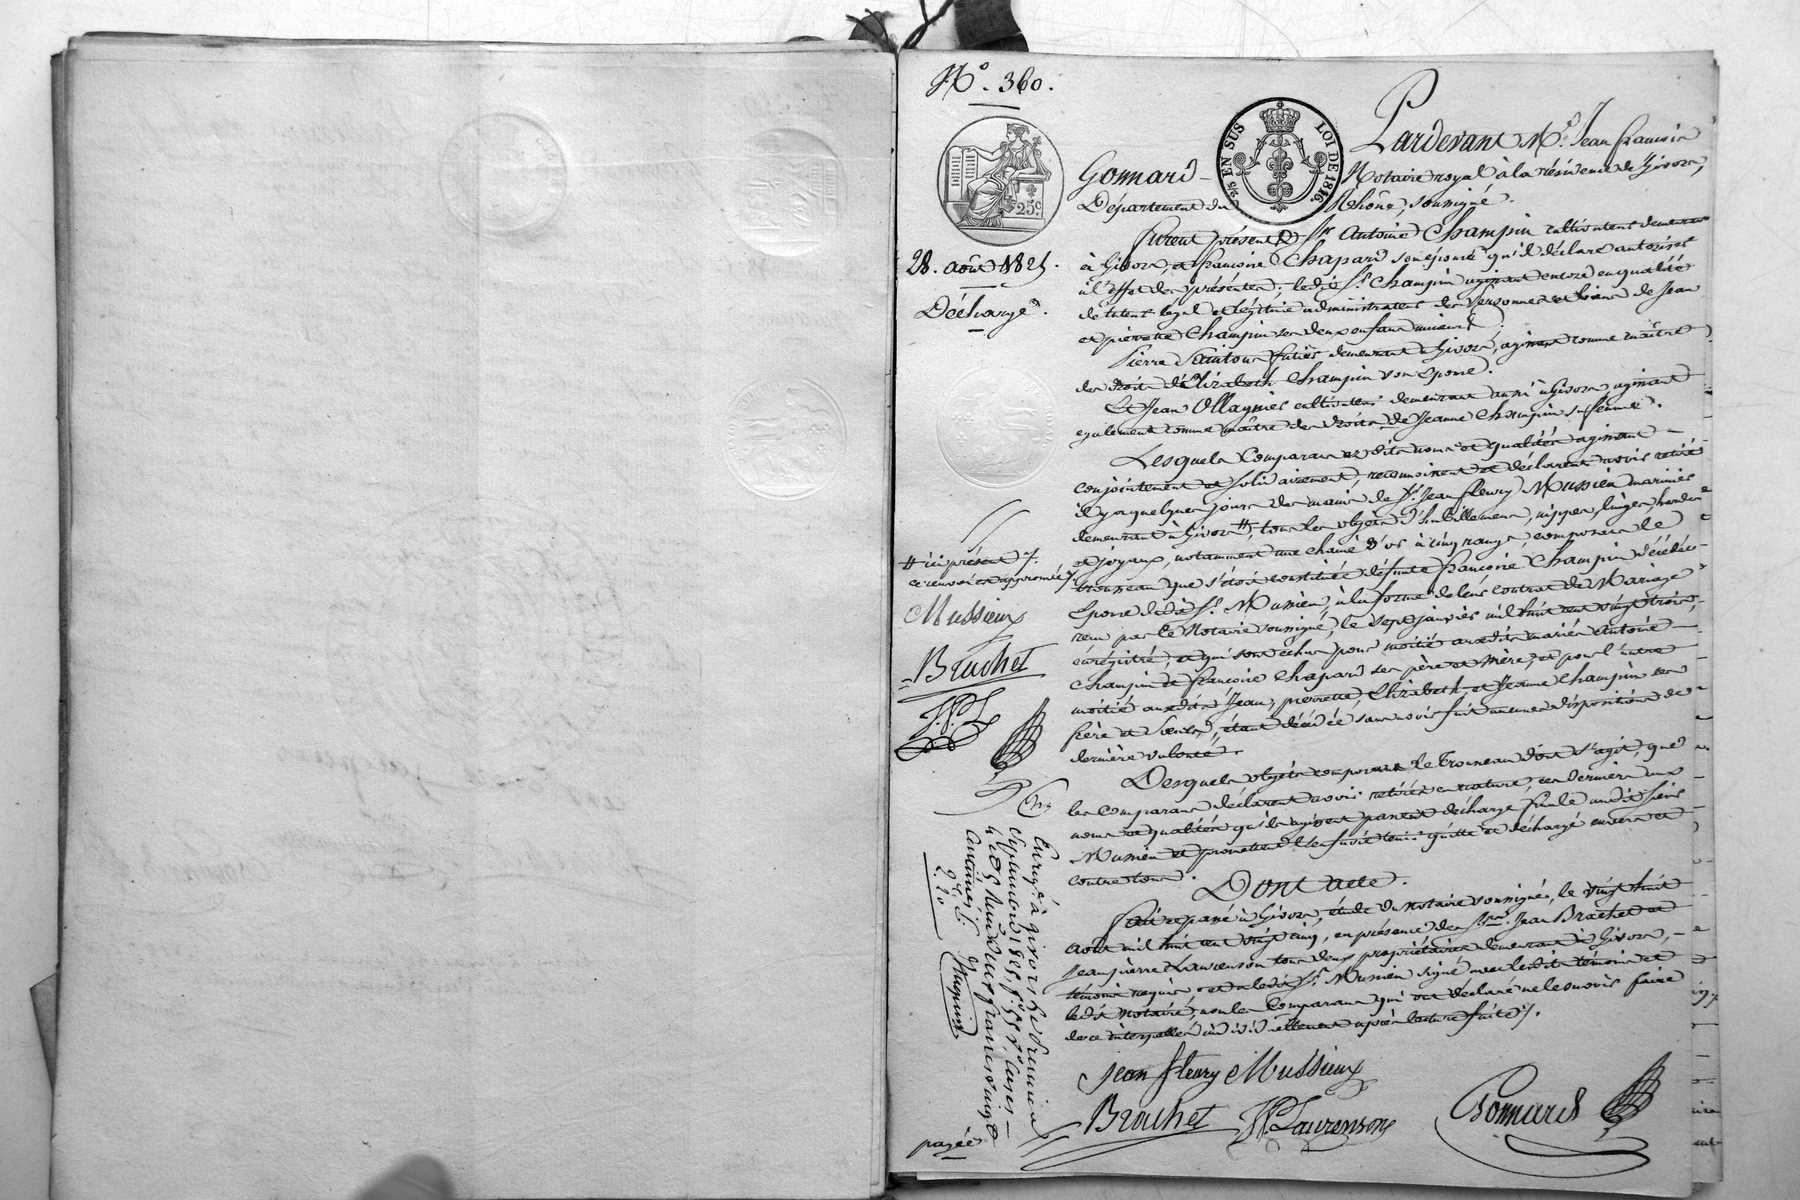 N.° 360.
25.c
2/5 EN SUS LOI DE 1816.
28. août 1825.
Décharge.
Pardevant M.e Jean françois
Gonnard Notaire royal à la résidence de Givors,
Département du Rhône, soussigné.
Furent présents Sr. Antoine Champin cultivateur demeurant
à Givors, et françoise Chapard son épouse qu'il déclare autoriser
à l'effet des présentes; ledit Sr. Champin agissant encore en qualité
de tuteur légal et légitime administrateur des personnes et biens de Jean
et pierrette Champin ses deux enfans mineurs.
Pierre demeurant à Givors, agissant comme maître
des droits d'Elizabeth Champin son épouse.
Et Jean Ollagnier cultivateur demeurant aussi à Givors agissant
également comme maître des droits de Jeanne Champin sa femme.
Lesquels Comparans ez dits noms et qualités agissant
conjointement et solidairement, reconnoissent et déclarent avoir retiré
il y a quelques jours des mains de Sr. Jean fleury Mussieu marinier
demeurant à Givors #, tous les objets d'habillement, nippes, linges, hardes
et joyaux, notamment une chaine d'or à cinq rangs, composant le
trousseau que s'étoit constituée défunte françoise Champin décédée
épouse dudit Sr. Mussieu, à la forme de leur contrat de Mariage
reçu par le Notaire soussigné, le sept janvier mil huit cent vingt trois,
enrégistré, et qui sont échus pour moitié auxdits mariés Antoine
Champin et françoise Chapard ses père et mère, et pour l'autre
moitié auxdits Jean, pierrette, Elizabeth et Jeanne Champin ses
frère et sœurs, étant décédée sans avoir fait aucunes dispositions de
dernière volonté.
Desquels objets composant le trousseau dont s'agit, que
les comparans déclarent avoir retirés en nature, ces derniers aux
noms et qualités qu'ils agissent passent décharge finale audit Sieur
Mussieu et promettent l'en faire tenir quitte et déchargé envers et
contre tous.
Dont acte.
fait et passé à Givors, étude du Notaire soussigné, le vingt huit
août mil huit cent vingt cinq, en présence des Srs. Jean Brachet et
Jean pierre Laurenson tous deux propriétaires demeurant à Givors,
témoins requis et a ledit Sr. Mussieu signé avec lesdits témoins et
ledit Notaire, non les Comparans qui ont déclaré ne le savoir faire
de ce interpellés individuellement après lecture faite.
# ici présent
ce renvoi est approuvé
Mussieux
Brachet
J.P.L
Enregé à givors le premier
Septembre 1825, fo. 55 Vo. Cases
reçu deux francs vingt
centimes
2.20
jean fleury Mussieux
Brachet J.P. Laurenson Gonnard
payée